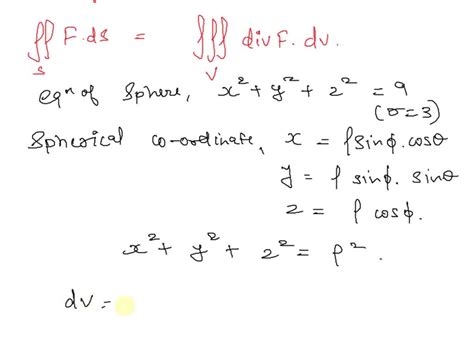 ∬_S F.ds = ∭_V div F. dv.
eqⁿ of Sphere, x² + y² + z² = 9
(r=3)
Spherical co-ordinate, x = ρ sinϕ. cosθ
y = ρ sinϕ. sinθ
z = ρ cosϕ.
x² + y² + z² = ρ².
dv =